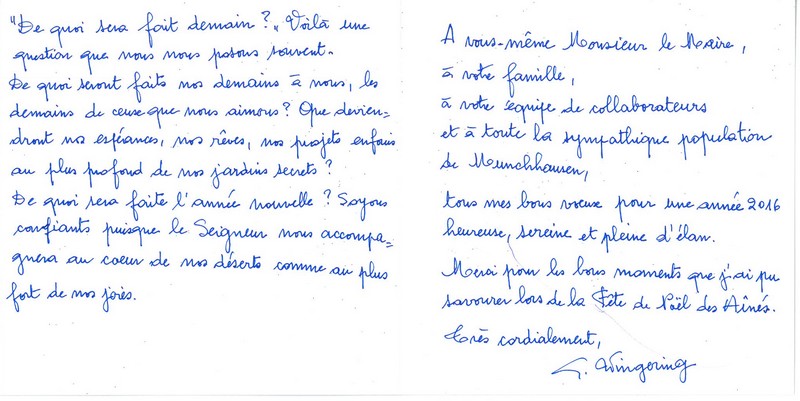 "De quoi sera fait demain ?" Voilà une
question que nous nous posons souvent.
De quoi seront faits nos demains à nous, les
demains de ceux que nous aimons ? Que devien=
dront nos espérances, nos rêves, nos projets enfouis
au plus profond de nos jardins secrets ?
De quoi sera faite l'année nouvelle ? Soyons
confiants puisque le Seigneur nous accompa=
gnera au coeur de nos déserts comme au plus
fort de nos joies.
A vous-même Monsieur le Maire,
à votre famille,
à votre équipe de collaborateurs
et à toute la sympathique population
de Munchhausen,
tous mes bons voeux pour une année 2016
heureuse, sereine et pleine d'élan.
Merci pour les bons moments que j'ai pu
savourer lors de la Fête de Noël des Aînés.
Très cordialement,
G. Wingering